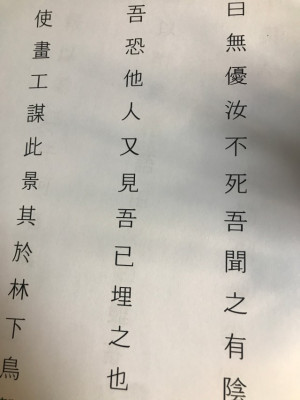 曰無優汝不死吾聞之有陰
吾恐他人又見吾已埋之也
使畫工謀此景其於林下鳥